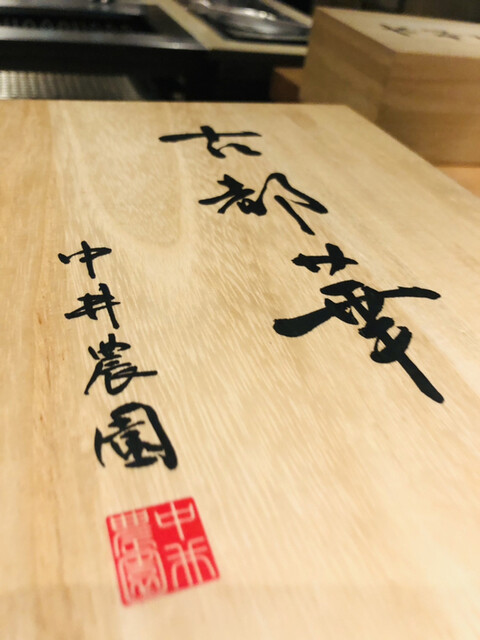 古都華
中井農園
中井農園